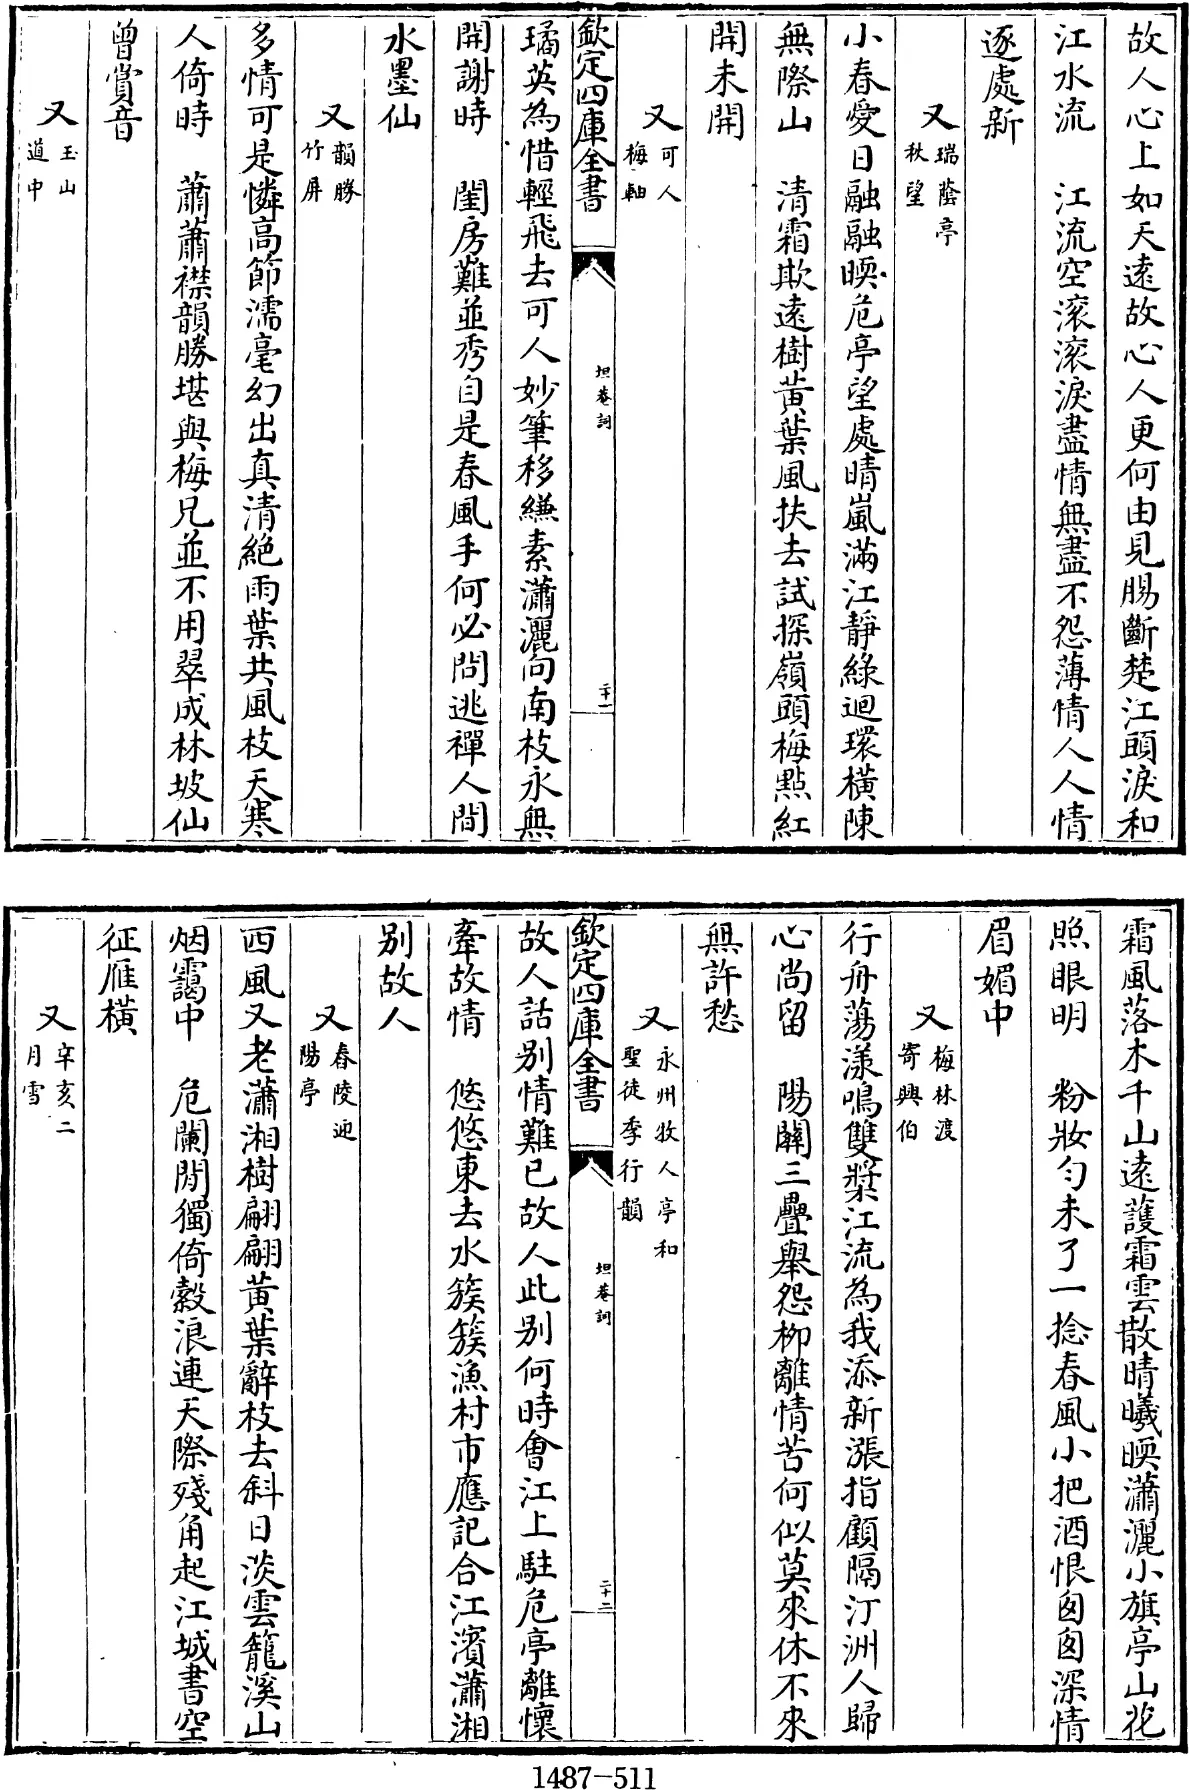 故人心上如天遠故心人更何由見腸斷楚江頭淚和
江水流　江流空滾滾淚盡情無盡不怨薄情人人情
逐處新
又瑞蔭亭
秋望
小春愛日融融暖危亭望處晴嵐滿江靜綠迴環橫陳
無際山　清霜欺遠樹黃葉風扶去試探嶺頭梅點紅
開未開
又可人
梅軸
欽定四庫全書
坦菴詞
二十一
璚英為惜輕飛去可人妙筆移縑素瀟灑向南枝永無
開謝時　閨房難並秀自是春風手何必問逃禪人間
水墨仙
又韻勝
竹屏
多情可是憐高節濡毫幻出真清絕雨葉共風枝天寒
人倚時　蕭蕭襟韻勝堪與梅兄並不用翠成林坡仙
曾賞音
又玉山
道中
霜風落木千山遠護霜雲散晴曦暖瀟灑小旗亭山花
照眼明　粉妝勻未了一捻春風小把酒恨匆匆深情
眉媚中
又梅林渡
寄興伯
行舟蕩漾鳴雙槳江流為我添新漲指顧隔汀洲人歸
心尚留　陽關三疊舉怨柳離情苦何似莫來休不來
無許愁
又永州牧人亭和
聖徒季行韻
欽定四庫全書
坦菴詞
二十二
故人話別情難已故人此別何時會江上駐危亭離懷
牽故情　悠悠東去水簇簇漁村市應記合江濱瀟湘
別故人
又舂陵迎
陽亭
西風又老瀟湘樹翩翩黃葉辭枝去斜日淡雲籠溪山
烟靄中　危闌閒獨倚縠浪連天際殘角起江城書空
征雁橫
又辛亥二
月雪
1487—511